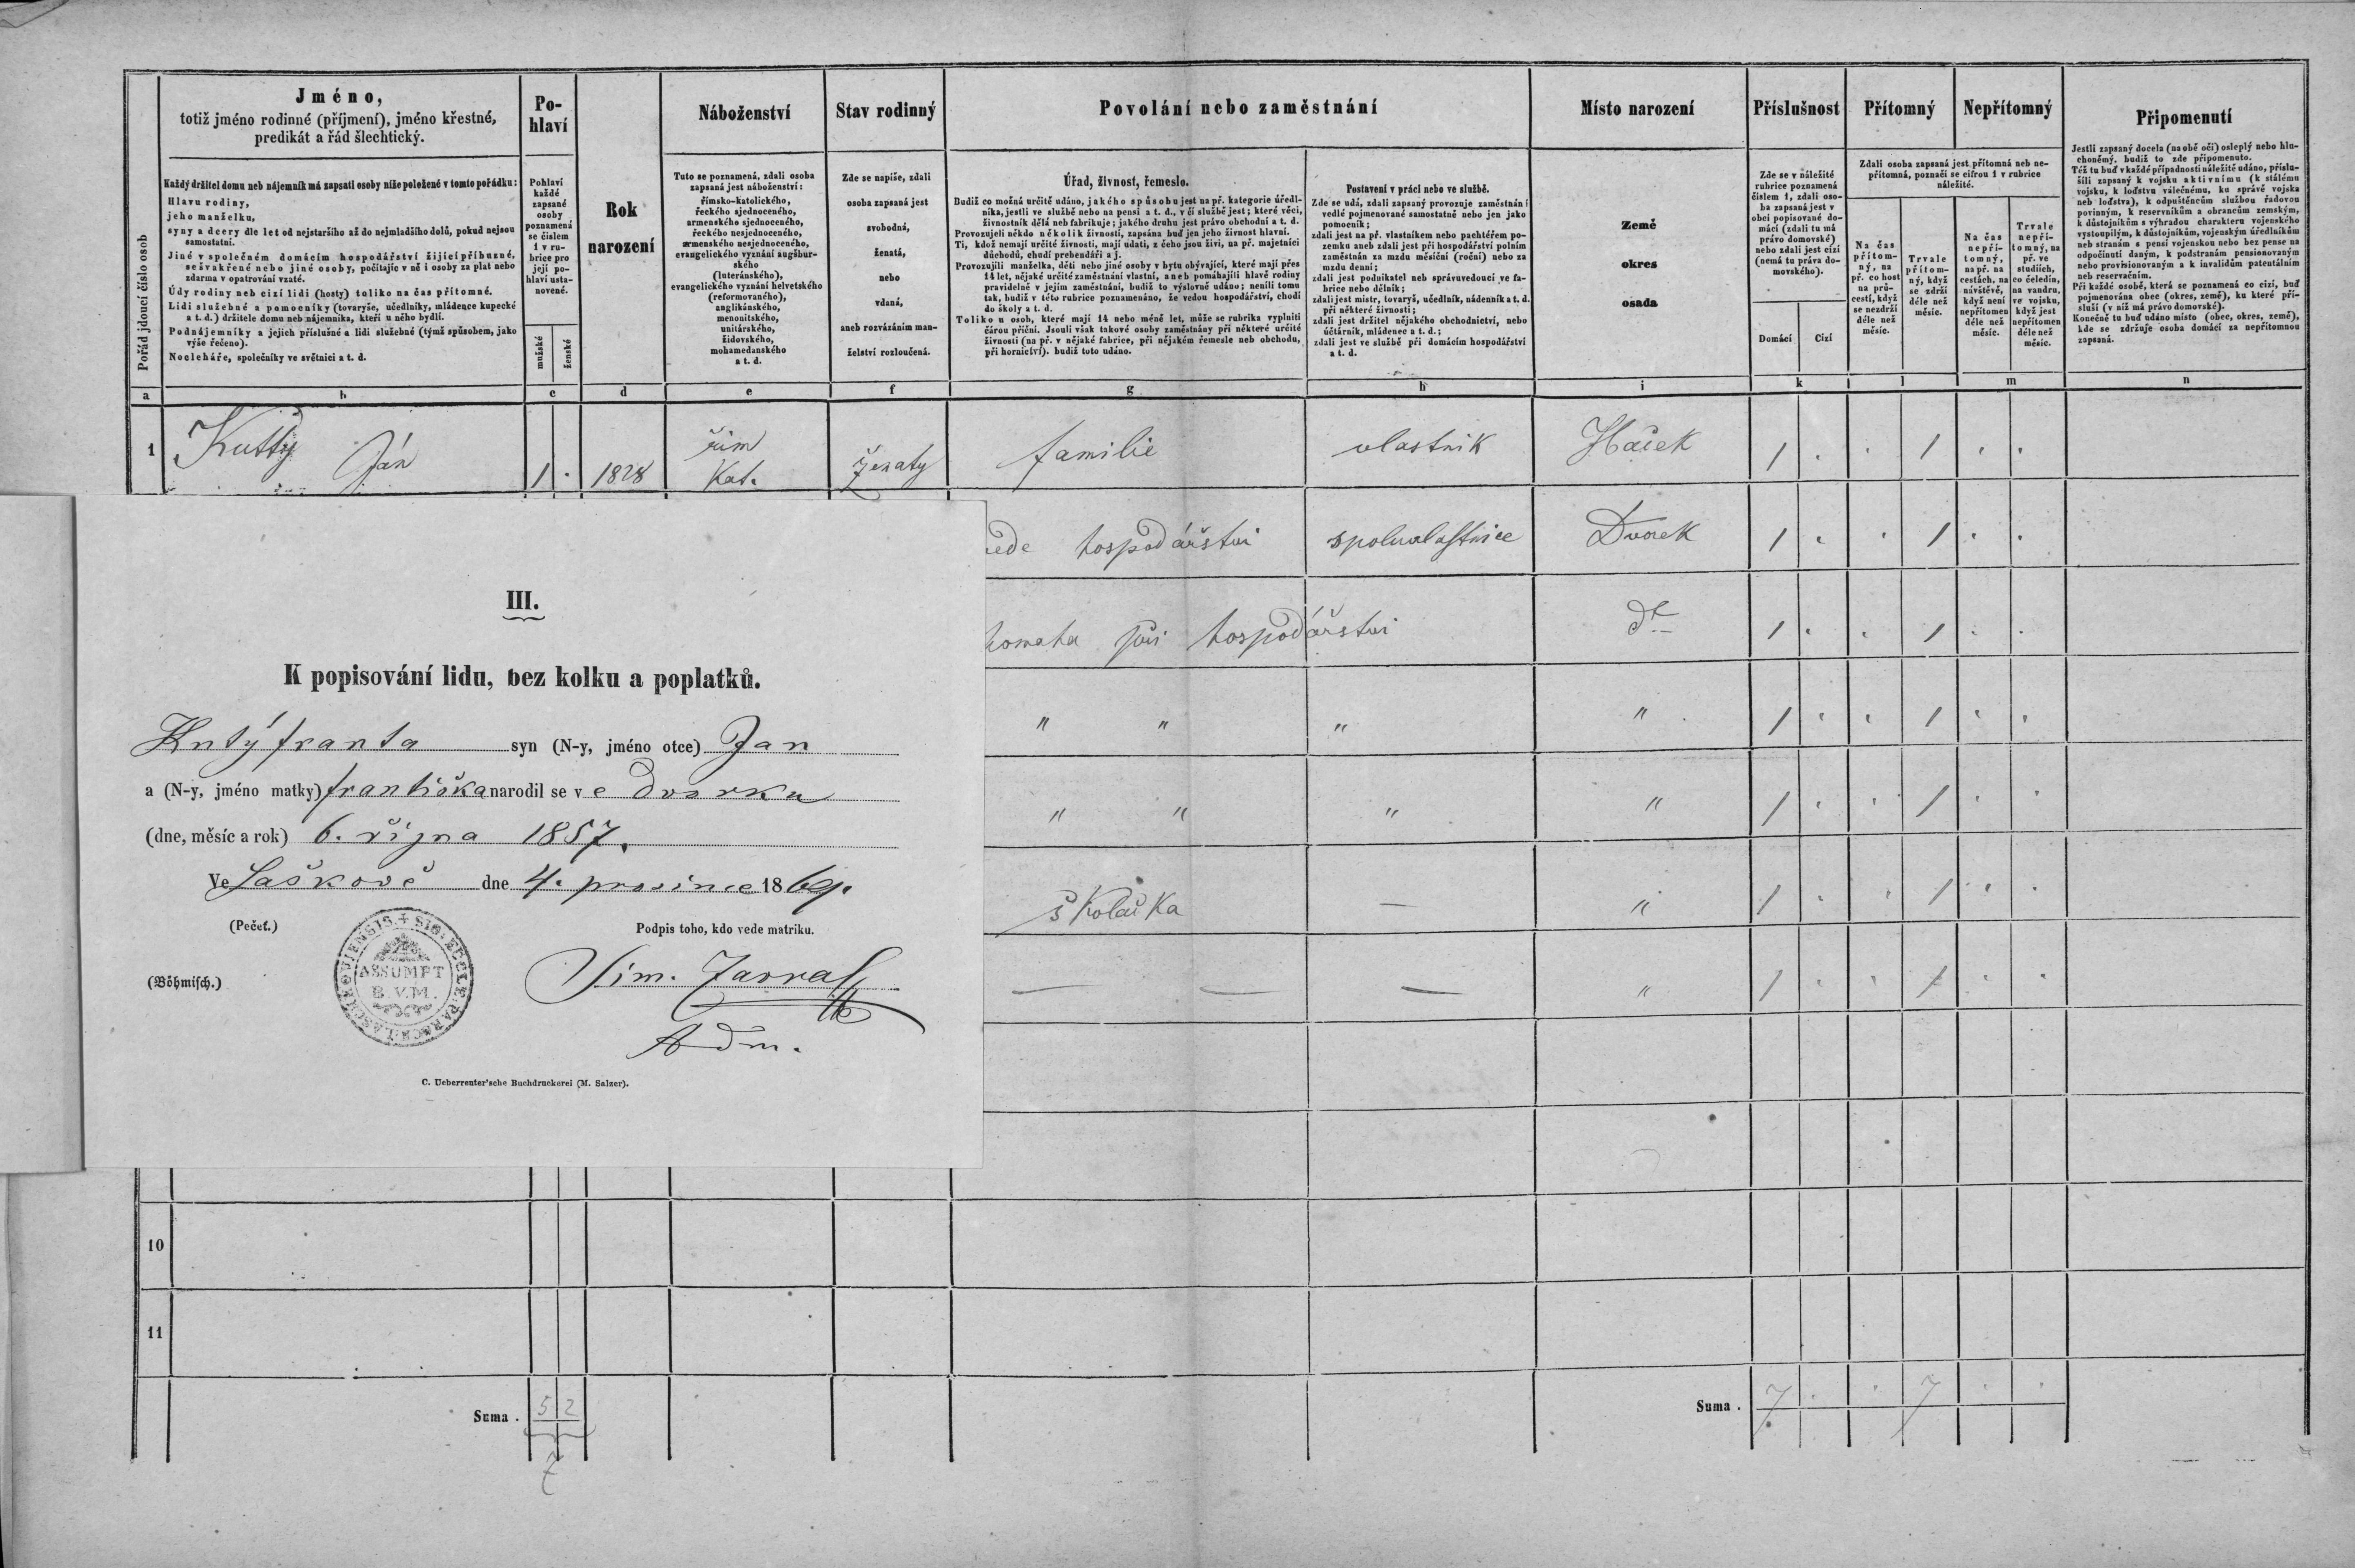 Pořád jdoucí číslo osob
Jméno,
totiž jméno rodinné (příjmení), jméno křestné,
predikát a řád šlechtický.
Každý držitel domu neb nájemník má zapsati osoby níže položené v tomto pořádku:
Hlavu rodiny,
jeho manželku,
syny a dcery dle let od nejstaršího až do nejmladšího dolů, pokud nejsou
samostatni.
Jiné v společném domácím hospodářství žijící příbuzné,
sešvakřené nebo jiné osoby, počítajíc v ně i osoby za plat nebo
zdarma v opatrování vzaté.
Údy rodiny neb cizí lidi (hosty) toliko na čas přítomné.
Lidi služebné a pomocníky (tovaryše, učedlníky, mládence kupecké
a t. d.) držitele domu neb nájemníka, kteří u něho bydlí.
Podnájemníky a jejich příslušné a lidi služebné (týmž spůsobem, jako
výše řečeno).
Nocleháře, společníky ve světnici a t. d.
Po-
hlaví
Pohlaví
každé
zapsané
osoby
poznamená
se číslem
1 v ru-
brice pro
její po-
hlaví usta-
novené.
mužské
ženské
Rok
narození
Náboženství
Tuto se poznamená, zdali osoba
zapsaná jest náboženství:
římsko-katolického,
řeckého sjednoceného,
armenského sjednoceného,
řeckého nesjednoceného,
armenského nesjednoceného,
evangelického vyznání augšbur-
ského
(luteránského),
evangelického vyznání helvetského
(reformovaného),
anglikánského,
menonitského,
unitárského,
židovského,
mohamedanského
a t. d.
Stav rodinný
Zde se napíše, zdali
osoba zapsaná jest
svobodná,
ženatá,
nebo
vdaná,
aneb rozvázáním man-
želství rozloučená.
Povolání nebo zaměstnání
Úřad, živnost, řemeslo.
Budiž co možná určitě udáno, jakého spůsobu jest na př. kategorie úředl-
níka, jestli ve službě nebo na pensi a t. d., v čí službě jest; které věci,
živnostník dělá neb fabrikuje; jakého druhu jest právo obchodní a t. d.
Provozujeli někdo několik živností, zapsána buď jen jeho živnost hlavní.
Ti, kdož nemají určité živnosti, mají udati, z čeho jsou živi, na př. majetníci
důchodů, chudí prebendáři a j.
Provozujíli manželka, děti nebo jiné osoby v bytu obývající, které mají přes
14 let, nějaké určité zaměstnání vlastní, aneb pomáhajíli hlavě rodiny
pravidelně v jejím zaměstnání, budiž to výslovně udáno; neníli tomu
tak, budiž v této rubrice poznamenáno, že vedou hospodářství, chodí
do školy a t. d.
Toliko u osob, které mají 14 nebo méně let, může se rubrika vyplniti
čárou příční. Jsouli však takové osoby zaměstnány při některé určité
živnosti (na př. v nějaké fabrice, při nějakém řemesle neb obchodu,
při hornictví). budiž toto udáno.
Postavení v práci nebo ve službě.
Zde se udá, zdali zapsaný provozuje zaměstnání
vedlé pojmenované samostatně nebo jen jako
pomocník;
zdali jest na př. vlastníkem nebo pachtéřem po-
zemku aneb zdali jest při hospodářství polním
zaměstnán za mzdu měsíční (roční) nebo za
mzdu denní;
zdali jest podnikatel neb správuvedoucí ve fa-
brice nebo dělník;
zdali jest mistr, tovaryš, učedlník, nádenník a t. d.
při některé živnosti;
zdali jest držitel nějakého obchodnictví, nebo
účtárník, mládenec a t. d.;
zdali jest ve službě při domácím hospodářství
a t. d.
Místo narození
Země
okres
osada
Příslušnost
Zde se v náležité
rubrice poznamená
číslem 1, zdali oso-
ba zapsaná jest v
obci popisované do-
mácí (zdali tu má
právo domovské)
nebo zdali jest cizí
(nemá tu práva do-
movského).
Domácí
Cizí
Přítomný
Nepřítomný
Zdali osoba zapsaná jest přítomná neb ne-
přítomná, poznačí se cifrou 1 v rubrice
náležité.
Na čas
přítom-
ný, na
př. co host
na prů-
cestí, když
se nezdrží
déle než
měsíc.
Trvale
přítom-
ný, když
se zdrží
déle než
měsíc.
Na čas
nepří-
tomný,
na př. na
cestách, na
návštěvě,
když není
nepřítomen
déle než
měsíc.
Trvale
nepří-
tomný, na
př. ve
studiích,
co čeledín,
na vandru,
ve vojsku,
když jest
nepřítomen
déle než
měsíc.
Připomenutí
Jestli zapsaný docela (na obě oči) osleplý nebo hlu-
choněmý. budiž to zde připomenuto.
Též tu buď v každé případnosti náležitě udáno, příslu-
šíli zapsaný k vojsku aktivnímu (k stálému
vojsku, k loďstvu válečnému, ku správě vojska
neb loďstva), k odpuštěncům službou řadovou
povinným, k reservníkům a obrancům zemským,
k důstojníkům s výhradou charakteru vojenského
vystouplým, k důstojníkům, vojenským úředlníkům
neb stranám s pensí vojenskou nebo bez pense na
odpočinutí daným, k podstranám pensionovaným
nebo provisionovaným a k invalidům patentálním
neb reservačním.
Při každé osobě, která se poznamená co cizí, buď
pojmenována obec (okres, země), ku které pří-
sluší (v níž má právo domovské).
Konečně tu buď udáno místo (obec, okres, země),
kde se zdržuje osoba domácí za nepřítomnou
zapsaná.
a b c d e f g h i k l m n
1 Kuttý Ján 1 . 1828 řím Kat. ženatý familie vlastnik Haček 1 . . 1 . .
hospodářstvi spoluvlastnice Dvorek 1 . . 1 . .
pomaha při hospodářstvi dt 1 . . 1 . .
" " " " 1 . . 1 . .
" " " " 1 . . 1 . .
školačka — " 1 . . 1 . .
— — — " 1 . . 1 . .
III.
K popisování lidu, bez kolku a poplatků.
Kutý franta syn (N-y, jméno otce) Jan
a (N-y, jméno matky) františka narodil se v e Dvorku
(dne, měsíc a rok) 6. října 1857.
Ve Laškově dne 4. prosince 1869.
(Pečeť.)
Podpis toho, kdo vede matriku.
ASSUMPT
B.V.M.
(Böhmisch.)
Adm.
C. Ueberreuter'sche Buchdruckerei (M. Salzer).
10
11
Suma . 5 2
7
Suma . 7 . . 7 . .